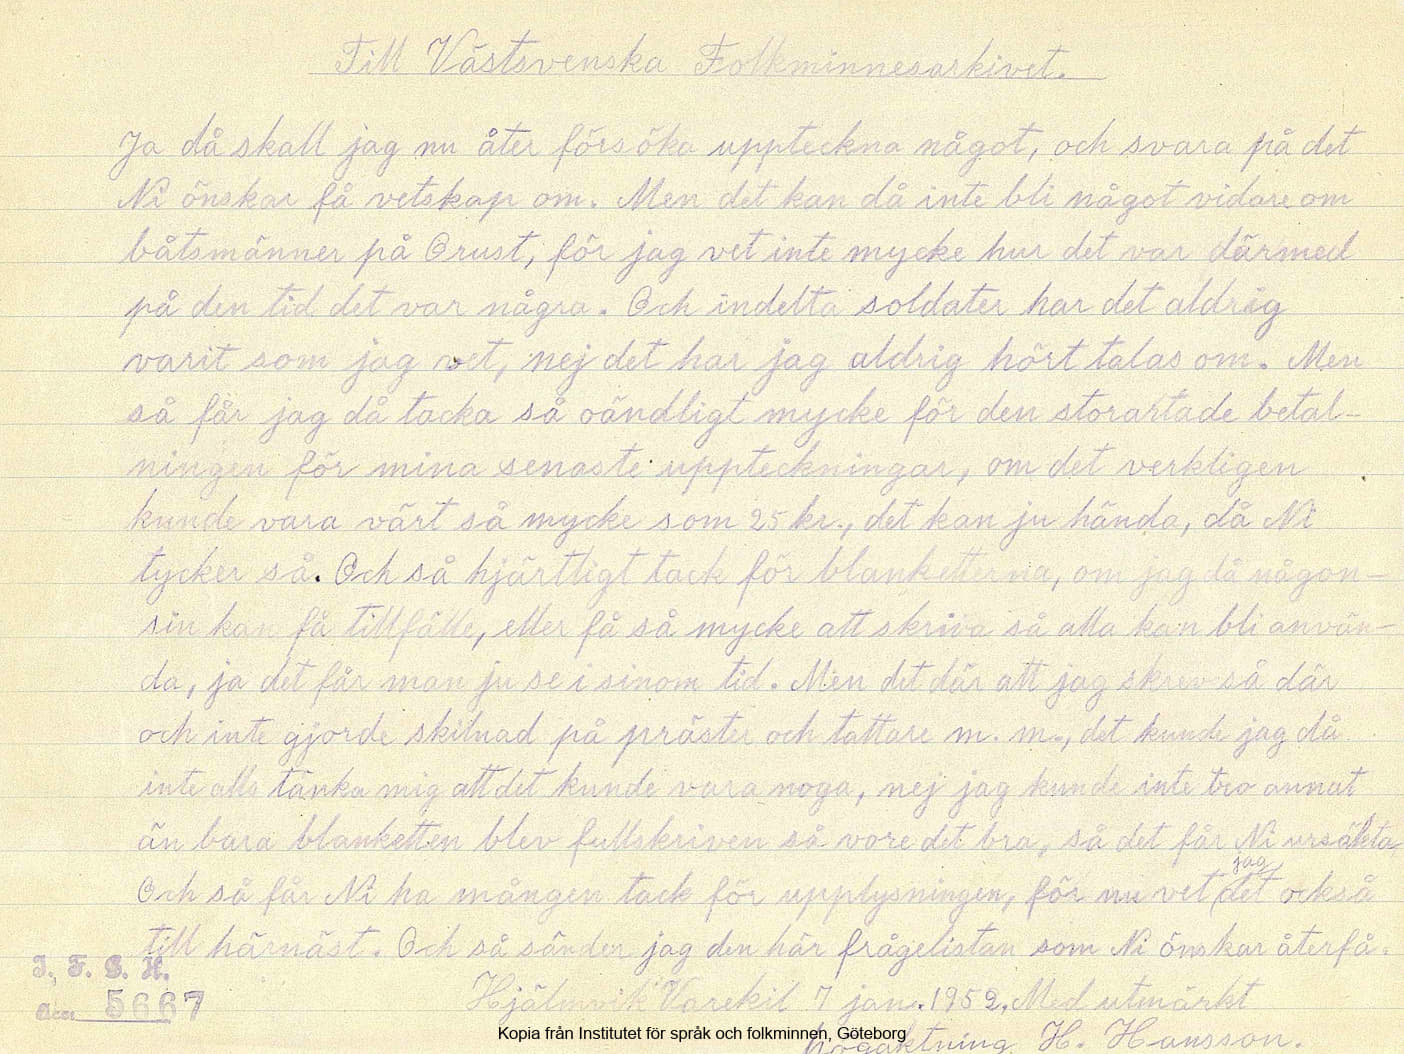 Till Västsvenska Folkminnesarkivet.
Ja då skall jag nu åter försöka uppteckna något, och svara på det
Ni önskar få vetskap om. Men det kan då inte bli något vidare om
båtsmänner på Orust, för jag vet inte mycke hur det var därmed
på den tid det var några. Och indelta soldater har det aldrig
varit som jag vet, nej det har jag aldrig hört talas om. Men
så får jag då tacka så oändligt mycke för den storartade betal-
ningen för mina senaste uppteckningar, om det verkligen
kunde vara värt så mycke som 25 kr., det kan ju hända, då Ni
tycker så. Och så hjärtligt tack för blanketterna, om jag då någon-
sin kan få tillfälle, eller få så mycke att skriva så alla kan bli använ-
da, ja det får man ju se i sinom tid. Men det där att jag skrev så där
och inte gjorde skilnad på präster och tattare m. m., det kunde jag då
inte alls tänka mig att det kunde vara noga, nej jag kunde inte tro annat
än bara blanketten blev fullskriven så vore det bra, så det får Ni ursäkta
Och så får Ni ha mången tack för upplysningen, för nu vet jag det också
till härnäst. Och så sänder jag den här frågelistan som Ni önskar återfå.
Hjälmvik Varekil 7 jan. 1952. Med utmärkt
högaktning H. Hansson.
I. F. G. H.
Acc. 5667
Kopia från Institutet för språk och folkminnen, Göteborg